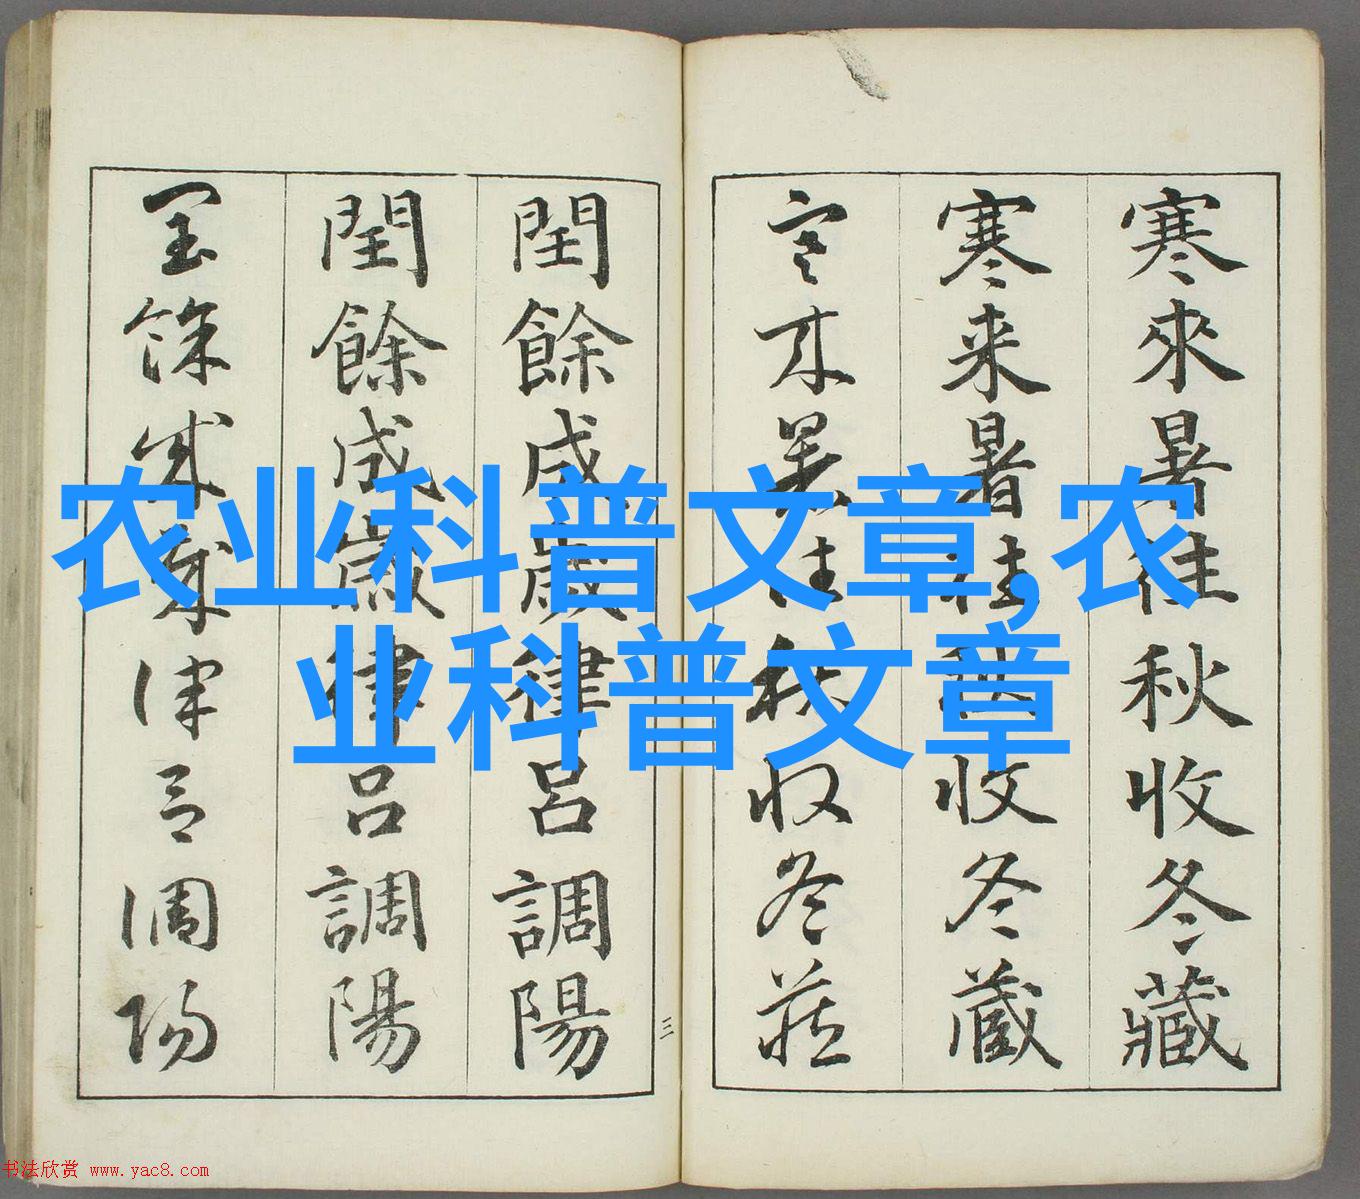 寒來暑往秋收冬藏
寒来暑往秋收冬蔵
寒来暑往秋収冬蔵
閏餘成歲律吕調陽
閏餘成嵗律吕調陽
閏餘成歲律吕調陽
三
农业科普文章,农
业科普文章
书法欣赏 www.yac8.com